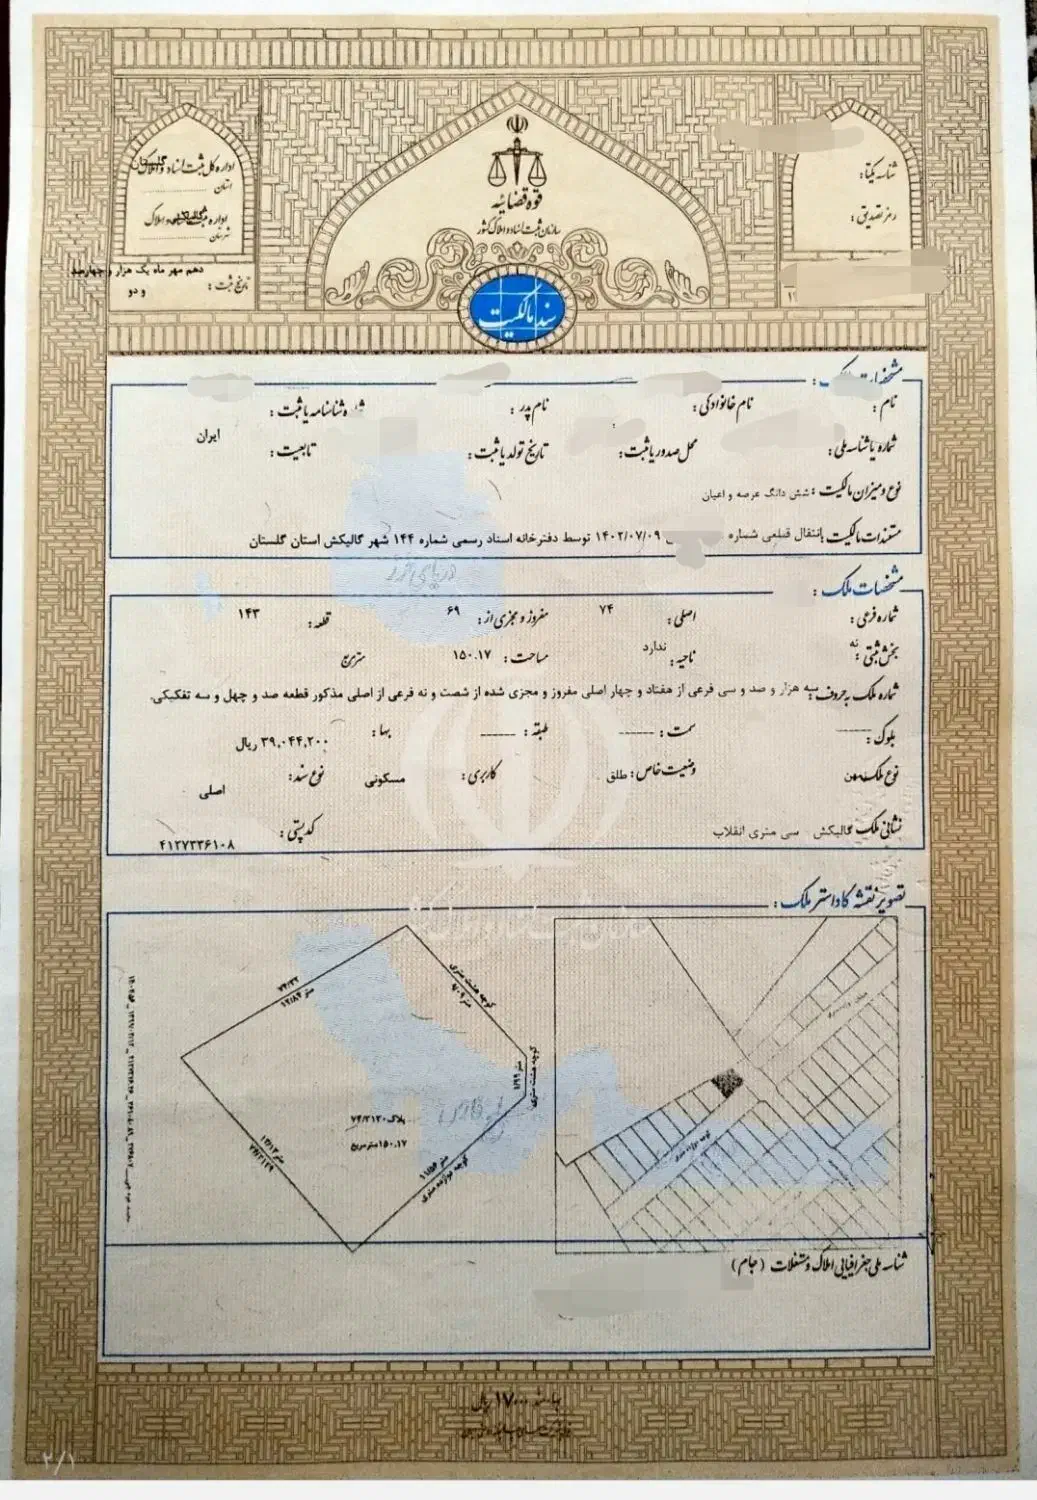 قوه قضائیه
سازمان ثبت اسناد و املاک کشور
سند مالکیت
شناسه یکتا:
رمز تصدیق:
اداره کل ثبت اسناد و املاک گلستان
استان
اداره ثبت اسناد و املاک گالیکش
شهرستان
تاریخ ثبت: دهم مهر ماه یک هزار و چهارصد و دو
مشخصات مالک:
نام: نام خانوادگی: نام پدر: شماره شناسنامه یا ثبت:
شماره یا شناسه ملی: محل صدور یا ثبت: تاریخ تولد یا ثبت: تابعیت: ایران
نوع و میزان مالکیت: شش دانگ عرصه و اعیان
مستندات مالکیت: انتقال قطعی شماره ۱۴۰۲/۰۷/۰۹ توسط دفترخانه اسناد رسمی شماره ۱۴۴ شهر گالیکش استان گلستان
دریای خزر
مشخصات ملک:
شماره فرعی: اصلی: ۷۴ مفروز و مجزی از: ۶۹ قطعه: ۱۴۳
بخش ثبتی: نه ناحیه: ندارد مساحت: ۱۵۰.۱۷ مترمربع
شماره ملک به حروف: سه هزار و صد و سی فرعی از هفتاد و چهار اصلی مفروز و مجزی شده از شصت و نه فرعی از اصلی مذکور قطعه صد و چهل و سه تفکیکی.
بلوک: ------ سمت: ------ طبقه: ------ بها: ۳۹,۰۴۴,۲۰۰ ریال
نوع ملک: وضعیت خاص: طلق کاربری: مسکونی نوع سند: اصلی
نشانی ملک: گالیکش - سی متری انقلاب کدپستی: ۴۱۲۷۳۳۶۱۰۸
تصویر نقشه کاداستر ملک:
کوچه هشت متری
متر ۹/۰۹
۱۲/۸۹ متر
کوچه هشت متری
متر ۱/۹۹
پلاک ۷۴/۳۱۳۰
۱۵۰.۱۷ مترمربع
کوچه دوازده متری
کوچه دوازده متری
خلیج فارس
شناسه ملی جغرافیایی املاک و مستغلات (جام)
۲/۱